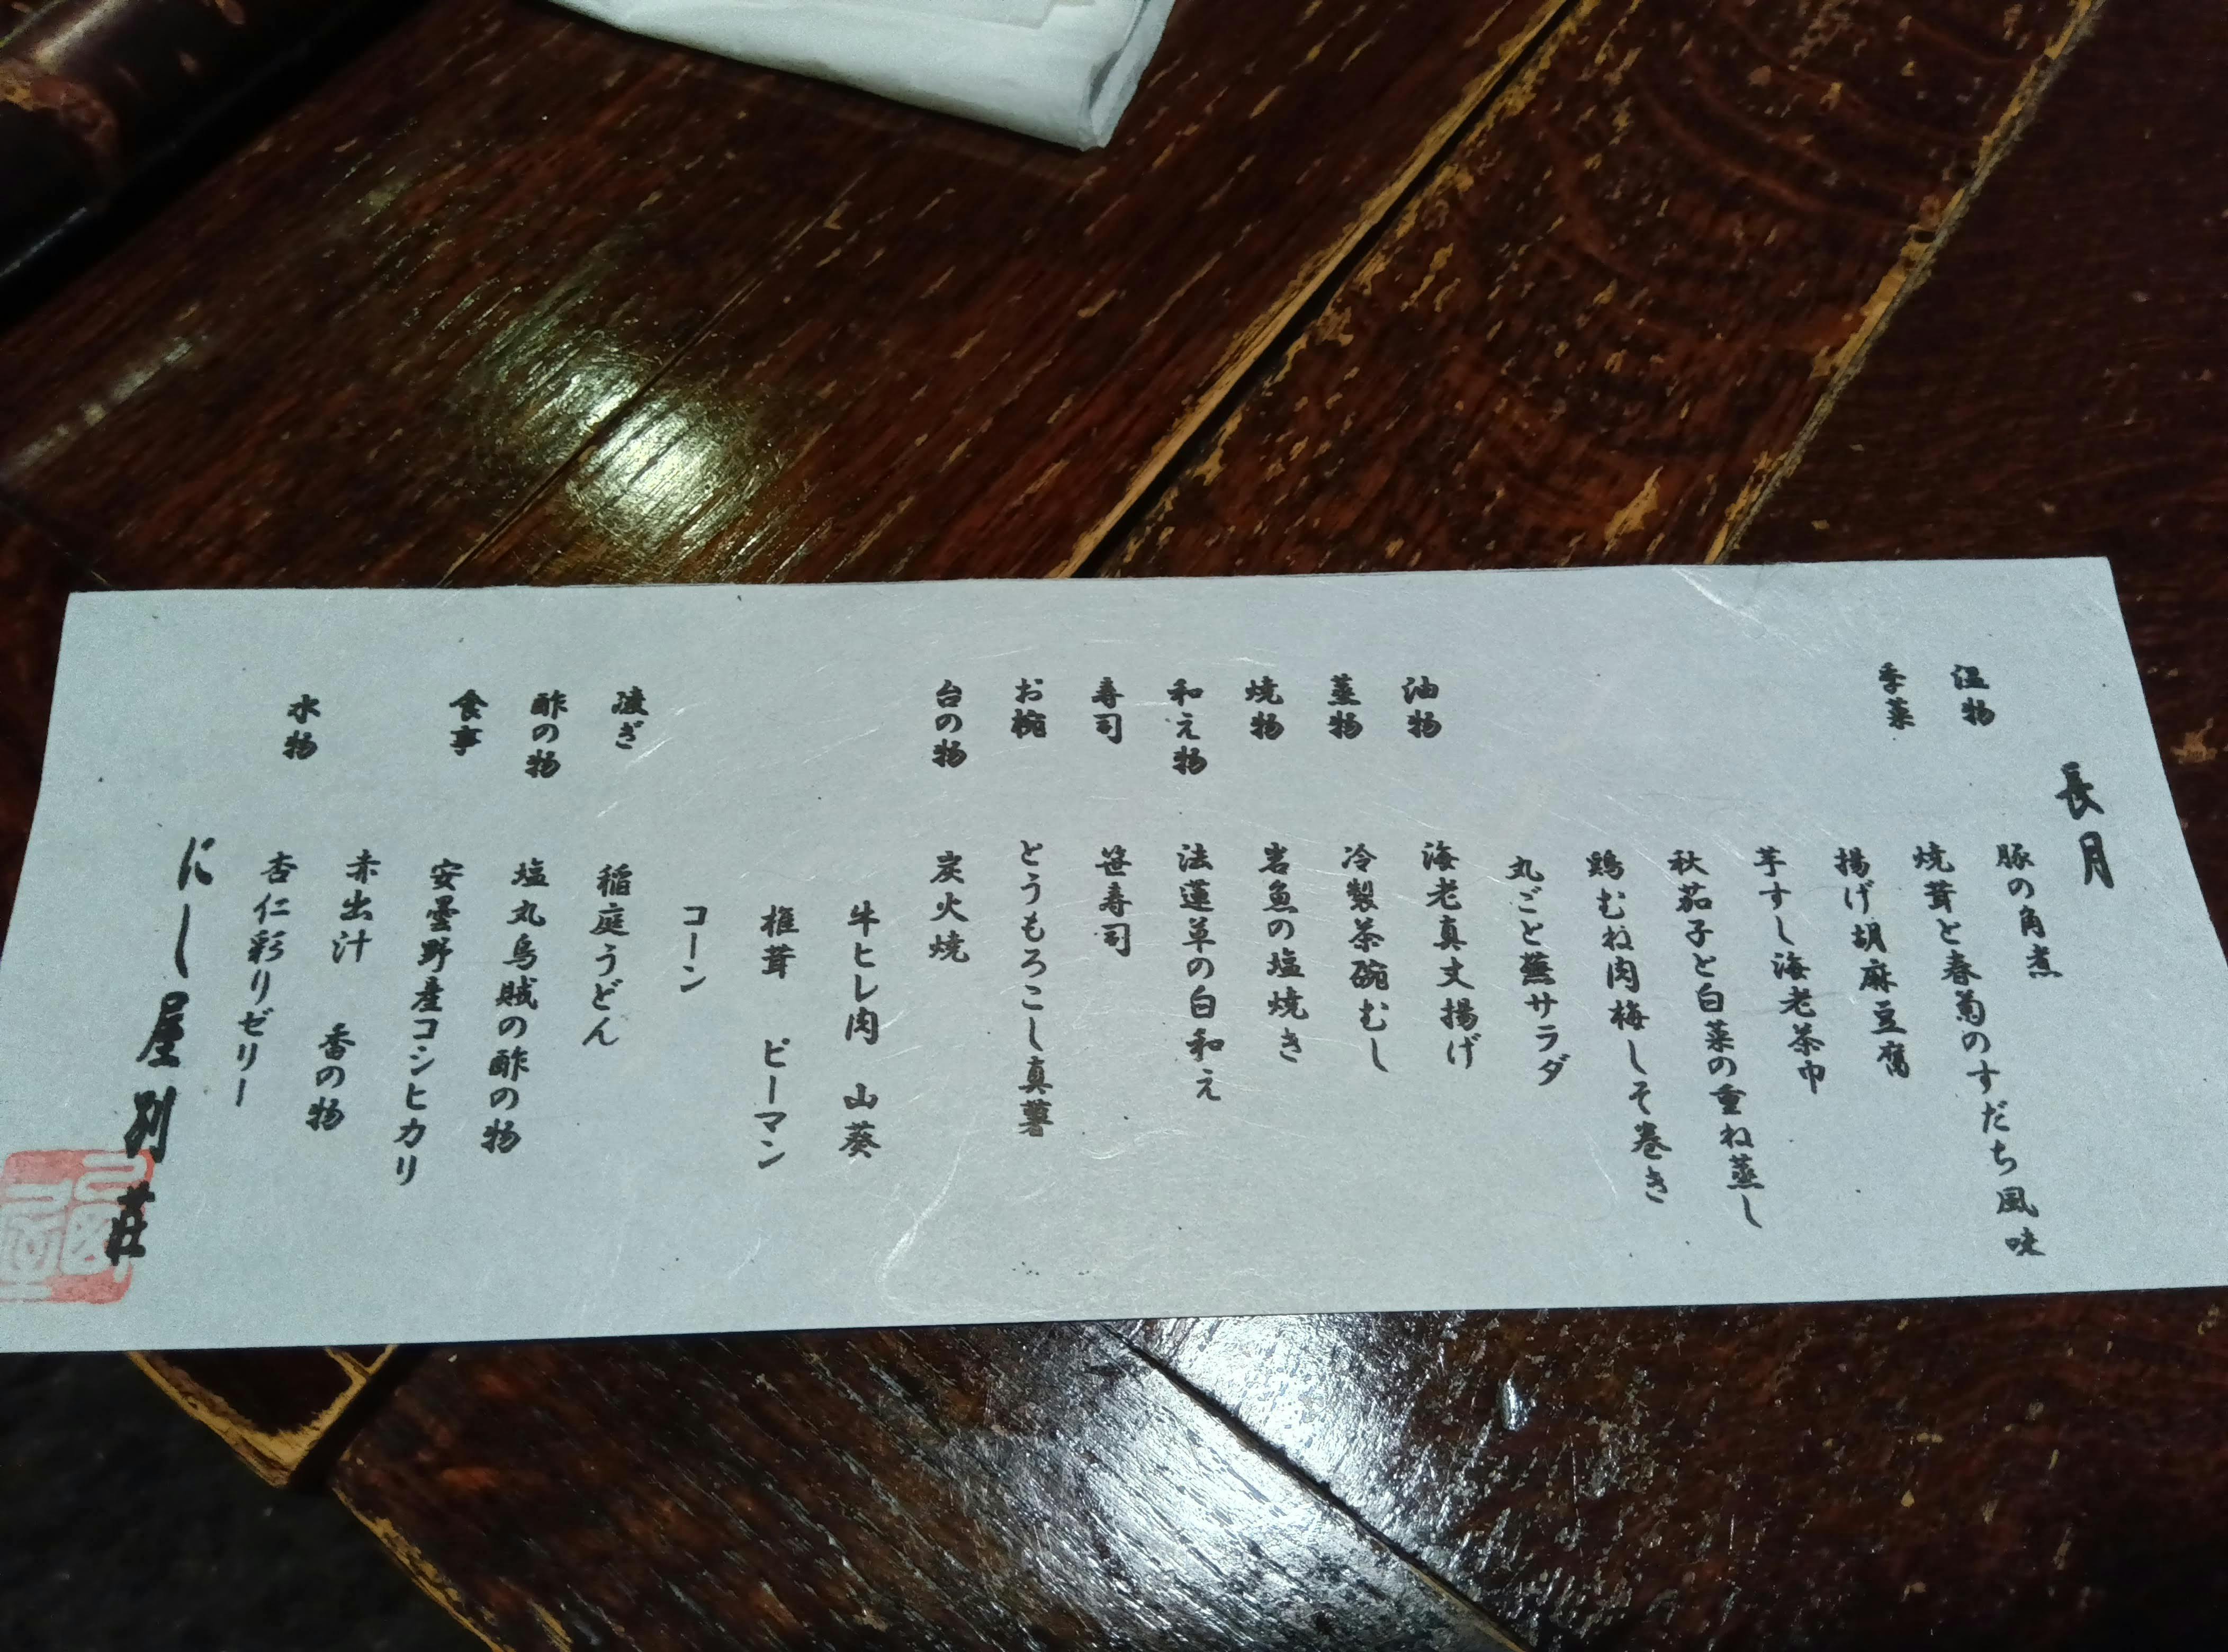 長月
温物 豚の角煮
季菜 焼茸と春菊のすだち風味
揚げ胡麻豆腐
芋すし海老茶巾
秋茄子と白菜の重ね蒸し
鶏むね肉梅しそ巻き
丸ごと蕪サラダ
油物 海老真丈揚げ
蒸物 冷製茶碗むし
焼物 岩魚の塩焼き
和え物 法蓮草の白和え
寿司 笹寿司
お椀 とうもろこし真薯
台の物 炭火焼
牛ヒレ肉 山葵
椎茸 ピーマン
コーン
凌ぎ 稲庭うどん
酢の物 塩丸烏賊の酢の物
食事 安曇野産コシヒカリ
赤出汁 香の物
水物 杏仁彩りゼリー
にし屋別荘